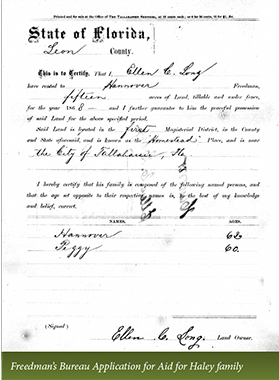 Printed and for sale at the Office of THE TALLAHASSEE SENTINEL,
State of Florida,
Leon County.
This is to Certify, That I Ellen C. Long
have rented to Hannover Freedman,
fifteen acres of Land, tillable and under fence,
for the year 1868 and I further guarantee to him the peaceful possession
of said Land for the above specified period.
Said Land is located in the first Magisterial District, in the County
and State aforesaid, and is known as the Homestead Place, and is near
the City of Tallahassee, Fla
I hereby certify that his family is composed of the following named persons, and
that the age set opposite to their respective names is, to the best of my knowledge
and belief, correct.
NAMES. AGES.
Hannover 62
Peggy 60.
(Signed)
Ellen C. Long. Land Owner.
Freedman's Bureau Application for Aid for Haley family